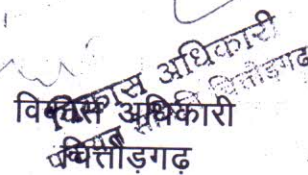 विकास अधिकारी
पंचायत समिति चित्तौड़गढ़
विकास अधिकारी
चित्तौड़गढ़